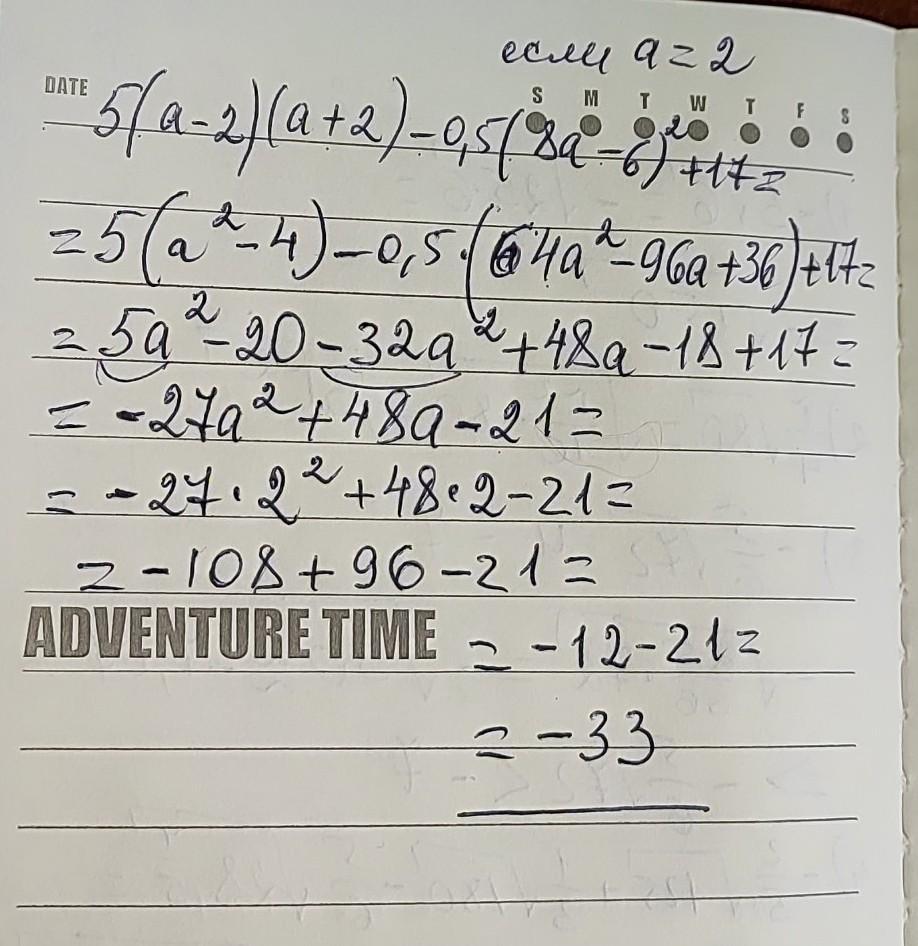 если a = 2
DATE S M T W T F S
5(a-2)(a+2)-0,5(8a-6)²+17=
=5(a²-4)-0,5·(64a²-96a+36)+17=
=5a²-20-32a²+48a-18+17=
=-27a²+48a-21=
=-27·2²+48·2-21=
=-108+96-21=
ADVENTURE TIME =-12-21=
=-33